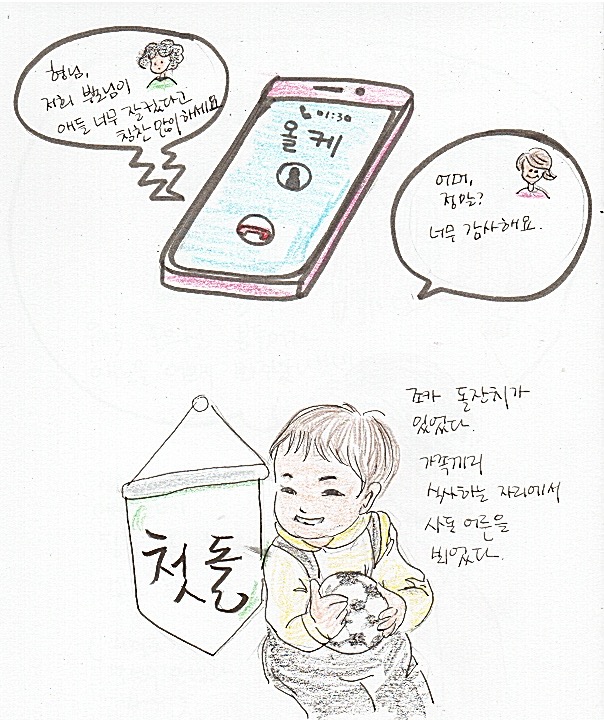 형님,
저희 부모님이
애들 너무 잘 컸다고
칭찬 많이 하세요
01:30
올케
어머,
정말?
너무 감사해요.
조카 돌잔치가
있었다.
가족끼리
식사하는 자리에서
사돈 어른을
뵈었다.
첫돌